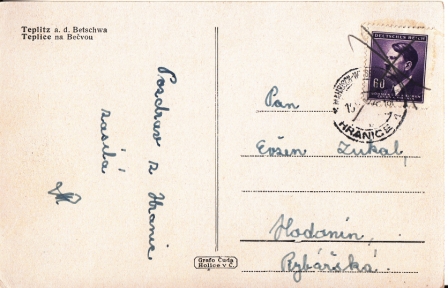 Teplitz a. d. Betschwa
Teplice na Bečvou
Pozdrav z Hranic
zasílá
DEUTSCHES REICH
60
HRANICE
Pan
Evžen Zukal
Hodonín,
Rybářská
Grafo Čuda
Holice v Č.